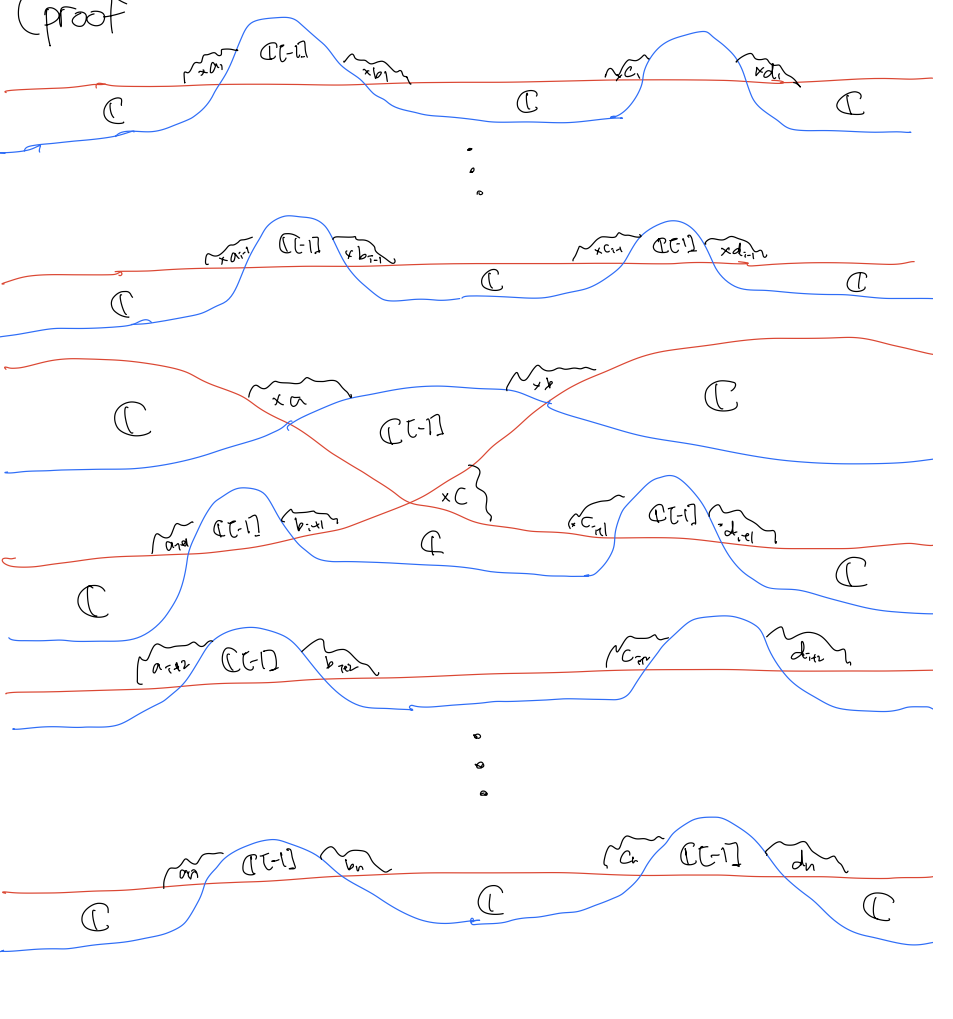 (proof
×a₁ ℂ[-1] ×b₁ ×c₁ ×d₁
ℂ ℂ ℂ
×aᵢ₋₁ ℂ[-1] ×bᵢ₋₁ ×cᵢ₋₁ ℂ[-1] ×dᵢ₋₁
ℂ ℂ ℂ
×a ×b
ℂ ℂ[-1] ℂ
×c
aᵢ₊₁ ℂ[-1] bᵢ₊₁ ×cᵢ₊₁ ℂ[-1] ×dᵢ₊₁
ℂ ℂ ℂ
aᵢ₊₂ ℂ[-1] bᵢ₊₂ cᵢ₊₂ dᵢ₊₂
aₙ ℂ[-1] bₙ cₙ ℂ[-1] dₙ
ℂ ℂ ℂ